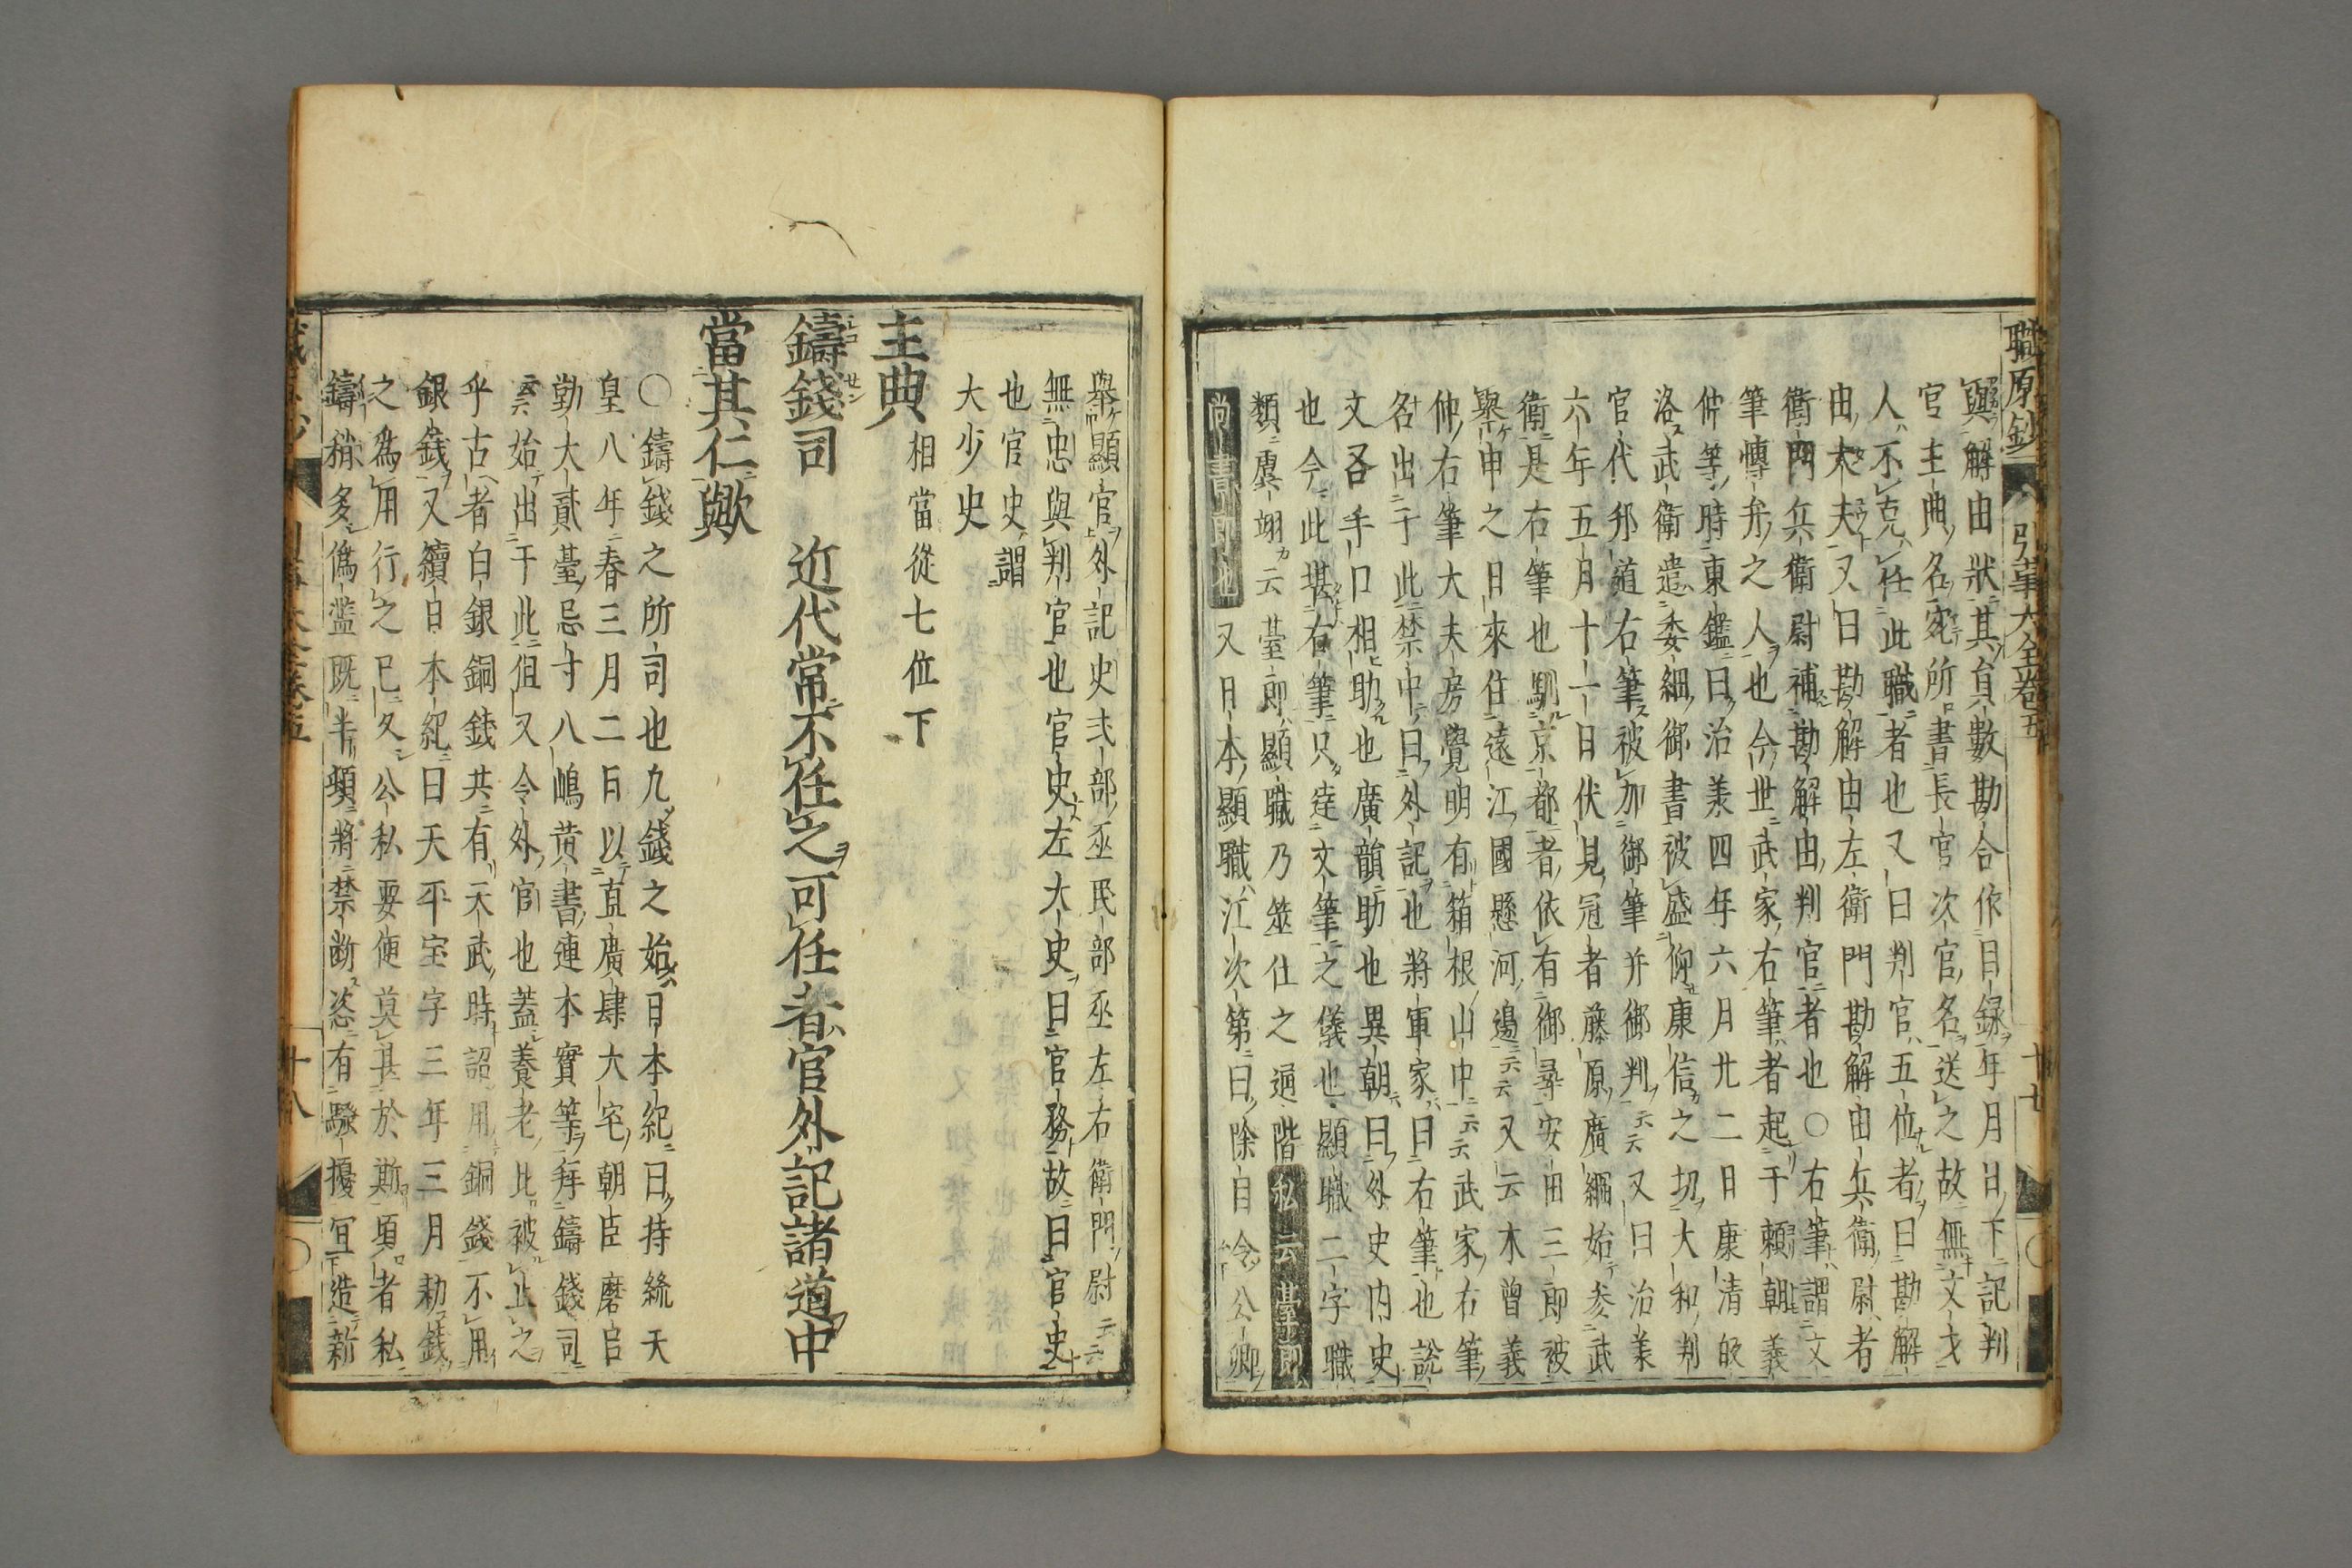 職原鈔 引事大全卷五 十七
與解由狀其員數勘合作目録年月日下記判
官主典名宛所書長官次官名送之故無文才
人不克任此職者也又曰判官五位者曰勘解
由大夫又曰勘解由左衛門勘解由兵衛尉者
衛門兵衛尉補勘解由判官者也〇右筆謂文
筆傳弁之人也今世武家右筆者起于頼朝義
仲等時東鑑曰治美四年六月廿二日康清皈
洛武衛遣委細御書被盛仰康信之切大和判
官代邦道右筆被加御筆并御判云云又曰治美
六年五月十一日伏見冠者藤原廣綱始参武
衛是右筆也馴京都者依有御尋安田三郎被
舉申之日來住遠江國懸河邊云云又云木曽義
仲右筆大夫房覺明有箱根山中云云武家右筆
名出于此禁中曰外記也將軍家曰右筆也說
文各手口相助也廣韻助也異朝曰外史内史
也今此堪右筆只達文筆之儀也顯職二字職
類虞翊云臺郎顯職乃筮仕之通階私云臺郎
尚書郎也又日本顯職江次第曰除目令公卿
舉顯官外記史式部丞民部丞左右衛門尉云云
無忠與判官也官史左大史曰官務故曰官史
也官史謂
大少史
主典 相當從七位下
鑄錢司 近代常不任之可任者官外記諸道中
當其仁歟
〇鑄錢之所司也九錢之始日本紀曰持統天
皇八年春三月二日以直廣肆大宅朝臣磨官
勤大貳臺忌寸八嶋黄書連本實等拜鑄錢司
云云始出于此但又令外官也蓋養老比被止之
乎古者白銀銅銭共有天武時詔用銅錢不用
銀銭又續日本紀曰天平宝字三年三月勅錢
之爲用行之已久公私要便莫甚於斯頃者私
鑄稍多僞濫既半頓將禁断恣有騷擾冝造新
十八